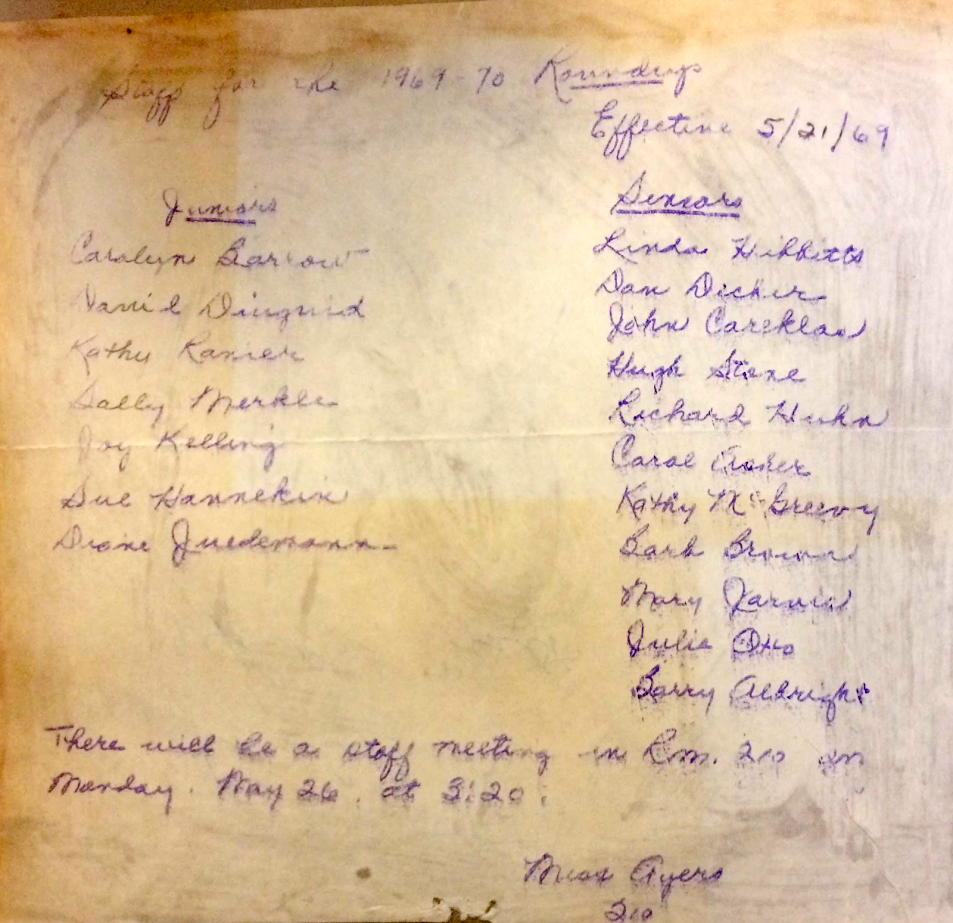 Staff for the 1969-70 Roundup
Effective 5/21/69
Juniors
Carolyn Barrow
David Diuguid
Kathy Ranier
Sally Merkle
Joy Kelling
Sue Hannekin
Diane Juedemann
Seniors
Linda Hibbitts
Dan Decker
John Careklas
Hugh Stone
Richard Huhn
Carol
Kathy McGreevy
Barb Brown
Mary Jarvis
Julie Otto
Barry Albright
There will be a staff meeting in Rm. 210 on
Monday. May 26. at 3:20.
Miss Ayers
210